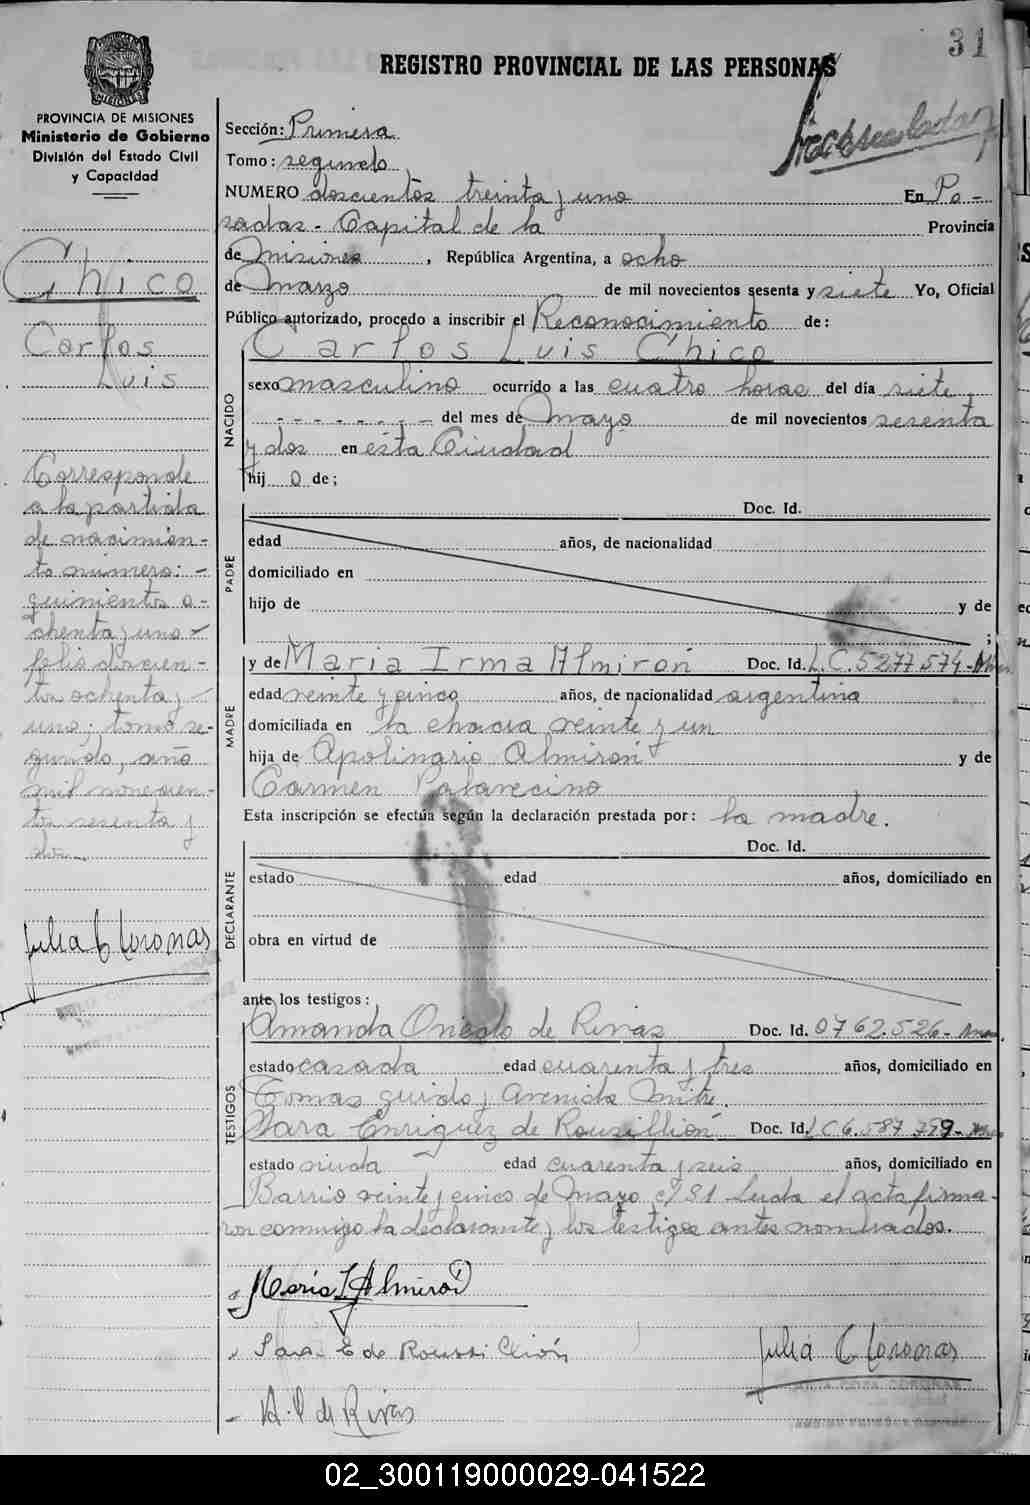 31
REGISTRO PROVINCIAL DE LAS PERSONAS
PROVINCIA DE MISIONES
Ministerio de Gobierno
División del Estado Civil
y Capacidad
Chico
Carlos
Luis
Corresponde
a la partida
de nacimien-
to número: -
quinientos o-
chenta y uno -
folio doscien-
tos ochenta y -
uno; tomo se-
gundo, año
mil novecien-
tos sesenta y
dos.
Julia C Coronas
Sección: Primera
Tomo: segundo
NUMERO doscientos treinta y uno En Po-
sadas - Capital de la Provincia
de Misiones, República Argentina, a ocho
de Marzo de mil novecientos sesenta y siete Yo, Oficial
Público autorizado, procedo a inscribir el Reconocimiento de:
NACIDO
Carlos Luis Chico
sexo masculino ocurrido a las cuatro horas del día siete
- - - - - - - del mes de Mayo de mil novecientos sesenta
y dos en esta Ciudad
hij o de;
PADRE
Doc. Id.
edad años, de nacionalidad
domiciliado en
hijo de y de
;
MADRE
y de Maria Irma Almirón Doc. Id. L.C. 5277.574-
edad veinte y cinco años, de nacionalidad argentina
domiciliada en la chacra veinte y un
hija de Apolinario Almirón y de
Carmen Palavecino
Esta inscripción se efectúa según la declaración prestada por: la madre.
DECLARANTE
Doc. Id.
estado edad años, domiciliado en
obra en virtud de
ante los testigos:
TESTIGOS
Amanda de Rivas Doc. Id. 0762.526-
estado casada edad cuarenta y tres años, domiciliado en
Tomas guido y Avenida Mitre.
Sara Enriquez de Rousillión Doc. Id. LC 6.587.799-
estado viuda edad cuarenta y seis años, domiciliado en
Barrio veinte y cinco de Mayo c/ 81 Leida el acta firma-
ron conmigo la declarante y los testigos antes nombrados.
Maria I Almirón
Sara E de Roussillión
Julia C Coronas
A. O de Rivas
02_300119000029-041522